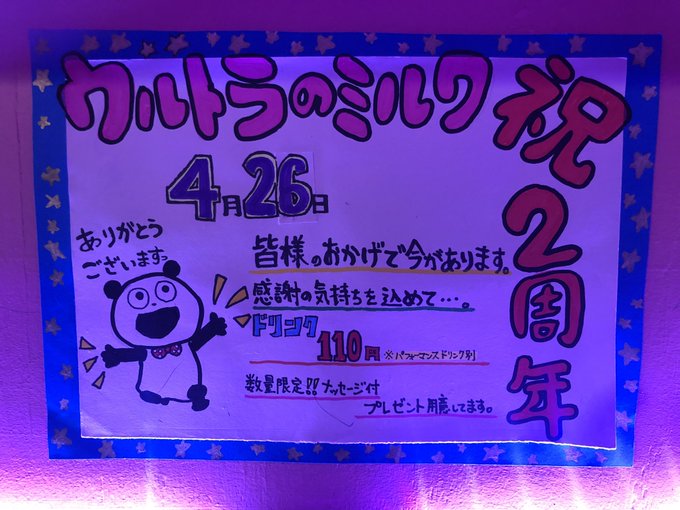 ウルトラのミルク
祝2周年
4月26日
ありがとう
ございますっ
皆様のおかげで今があります。
感謝の気持ちを込めて…。
ドリンク
110円 ※パフォーマンスドリンク別
数量限定!!メッセージ付
プレゼント用意してます。